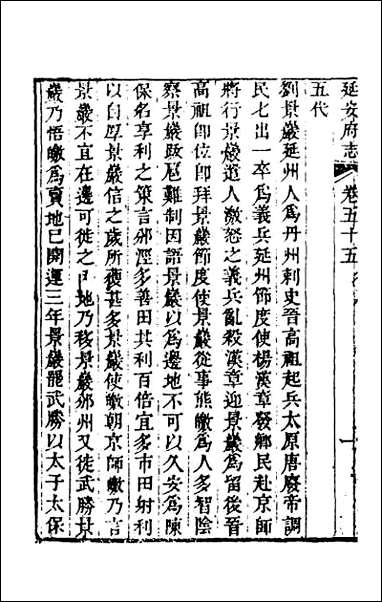 延安府志
卷五十五
一
五代
劉景巖延州人爲丹州刺史晉高祖起兵太原唐廢帝調
民七出一卒爲義兵延州節度使楊漢章發鄉民赴京師
將行景巖遣人激怒之義兵亂殺漢章迎景巖爲留後晉
高祖即位即拜景巖節度使景巖從事熊皦爲人多智陰
察景巖跋扈難制因語景巖以爲邊地不可以久安爲陳
保名享利之策言邠涇多善田其利百倍宜多市田射利
以自厚景巖信之歲所獲甚多景巖使皦朝京師皦乃言
景巖不宜在邊可徙之內地乃移景巖邠州又徙武勝景
巖乃悟皦爲賣地已開運三年景巖罷武勝以太子太保